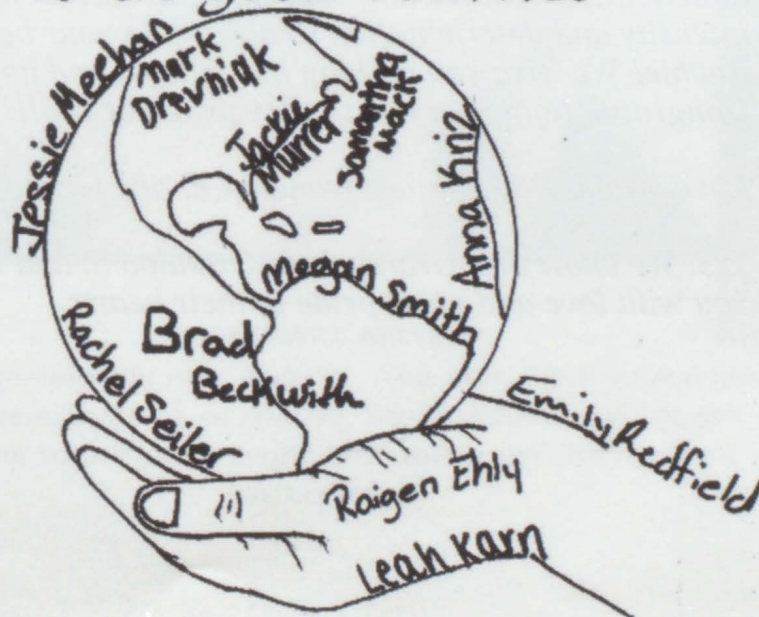 Jessie Meehan
Mark
Drevniak
Jackie
Murrer
Samantha
Mack
Anna Kriz
Meegan Smith
Brad
Beckwith
Rachel Seiler
Emily Redfield
Raigen Ehly
Leah Karn